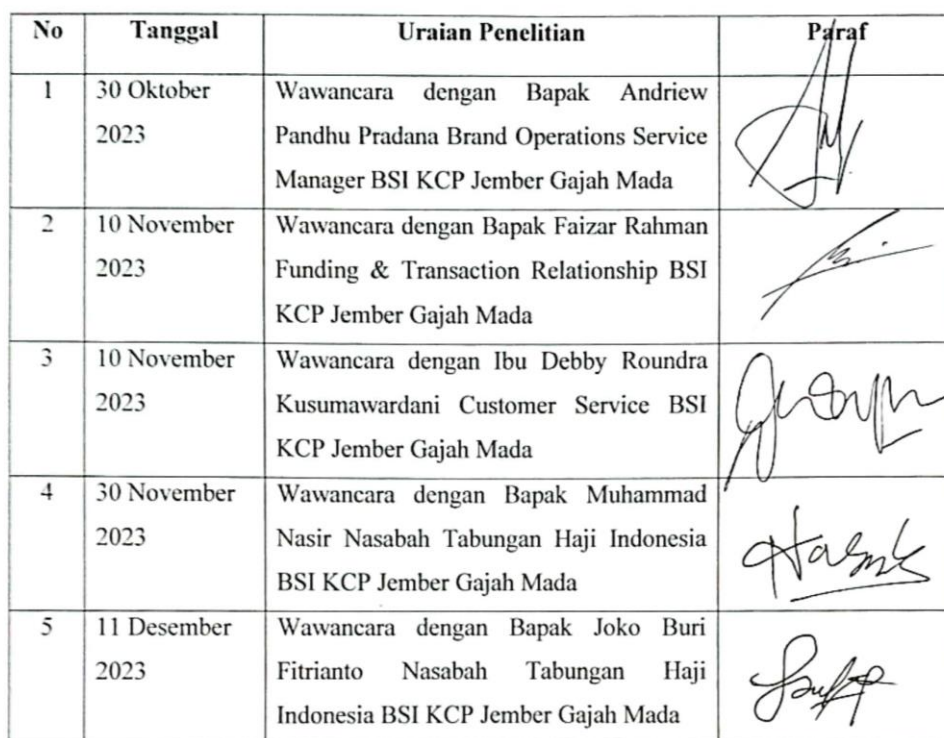 No Tanggal Uraian Penelitian Paraf
1 30 Oktober Wawancara dengan Bapak Andriew
2023 Pandhu Pradana Brand Operations Service
Manager BSI KCP Jember Gajah Mada
2 10 November Wawancara dengan Bapak Faizar Rahman
2023 Funding & Transaction Relationship BSI
KCP Jember Gajah Mada
3 10 November Wawancara dengan Ibu Debby Roundra
2023 Kusumawardani Customer Service BSI
KCP Jember Gajah Mada
4 30 November Wawancara dengan Bapak Muhammad
2023 Nasir Nasabah Tabungan Haji Indonesia
BSI KCP Jember Gajah Mada
5 11 Desember Wawancara dengan Bapak Joko Buri
2023 Fitrianto Nasabah Tabungan Haji
Indonesia BSI KCP Jember Gajah Mada